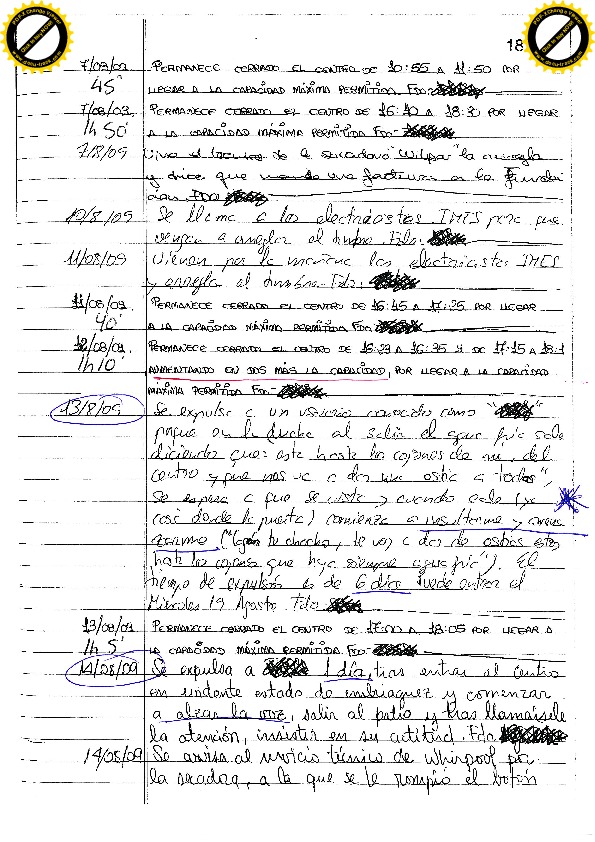 18
7/08/09 PERMANECE CERRADO EL CENTRO DE 10:55 A 11:50 POR
45' LLEGAR A LA CAPACIDAD MÁXIMA PERMITIDA. FDO:
7/08/09 PERMANECE CERRADO EL CENTRO DE 16:40 A 18:30 POR LLEGAR
1h 50' A LA CAPACIDAD MÁXIMA PERMITIDA FDO:
7/8/09 Vino el técnico de la secadora "Wilpor" la arregla
y dice que manda una factura a la Funda
cion FDO
10/8/09 Se llama a los electricistas IMES para que
vengan a arreglar el timbre Fdo:
11/08/09 Vienen por la mañana los electricistas IMES
y arregla el timbre Fdo:
11/08/09 PERMANECE CERRADO EL CENTRO DE 16:45 A 17:25 POR LLEGAR
40' A LA CAPACIDAD MÁXIMA PERMITIDA FDO:
12/08/09 PERMANECE CERRADO EL CENTRO DE 16:23 A 16:35 Y DE 17:15 A 18:1
1h10' AUMENTANDO EN DOS MÁS LA CAPACIDAD, POR LLEGAR A LA CAPACIDAD
MÁXIMA PERMITIDA FDO-
13/8/09 Se expulsa a un usuario conocido como "
porque en la ducha al salir el agua fría sale
diciendo que: esta hasta los cojones de mi, del
centro y que nos va a dar una ostia a todos",
Se espera a que se vista y cuando sale (ya
casi donde la puerta) comienza a insultarme y amena
zarme ("Igual te chocho, te voy a dar de ostias estoy
hasta los cojones que haya siempre agua fría"). El
tiempo de expulsión es de 6 días Puede entrar el
Miércoles 19 Agosto Fdo
13/08/09 PERMANECE CERRADO EL CENTRO DE 17:00 A 18:05 POR LLEGAR A
1h 5' LA CAPACIDAD MÁXIMA PERMITIDA. FDO-
14/08/09 Se expulsa a 1 día, tras entrar al centro
en evidente estado de embriaguez y comenzar
a alzar la voz, salir al patio y tras llamársele
la atención, insistir en su actitud. Fdo
14/08/09 Se avisa al servicio técnico de whirpool por
la secadora, a la que se le rompió el botón